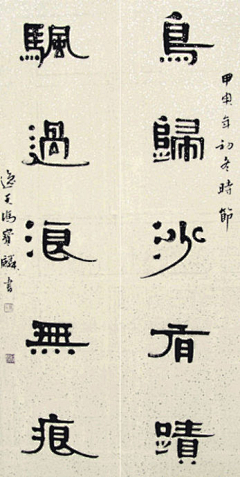 鳥歸沙有蹟
甲年初冬時節
颿過浪無痕
馮寶麟書